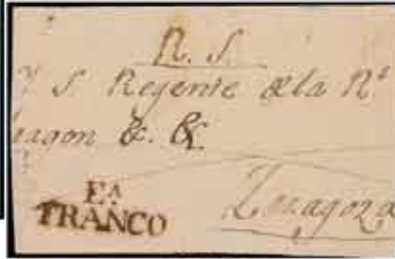 R. S.
Y S. Regente de la R.ˡ
ragon &. &.
E.A
FRANCO
Zaragoza